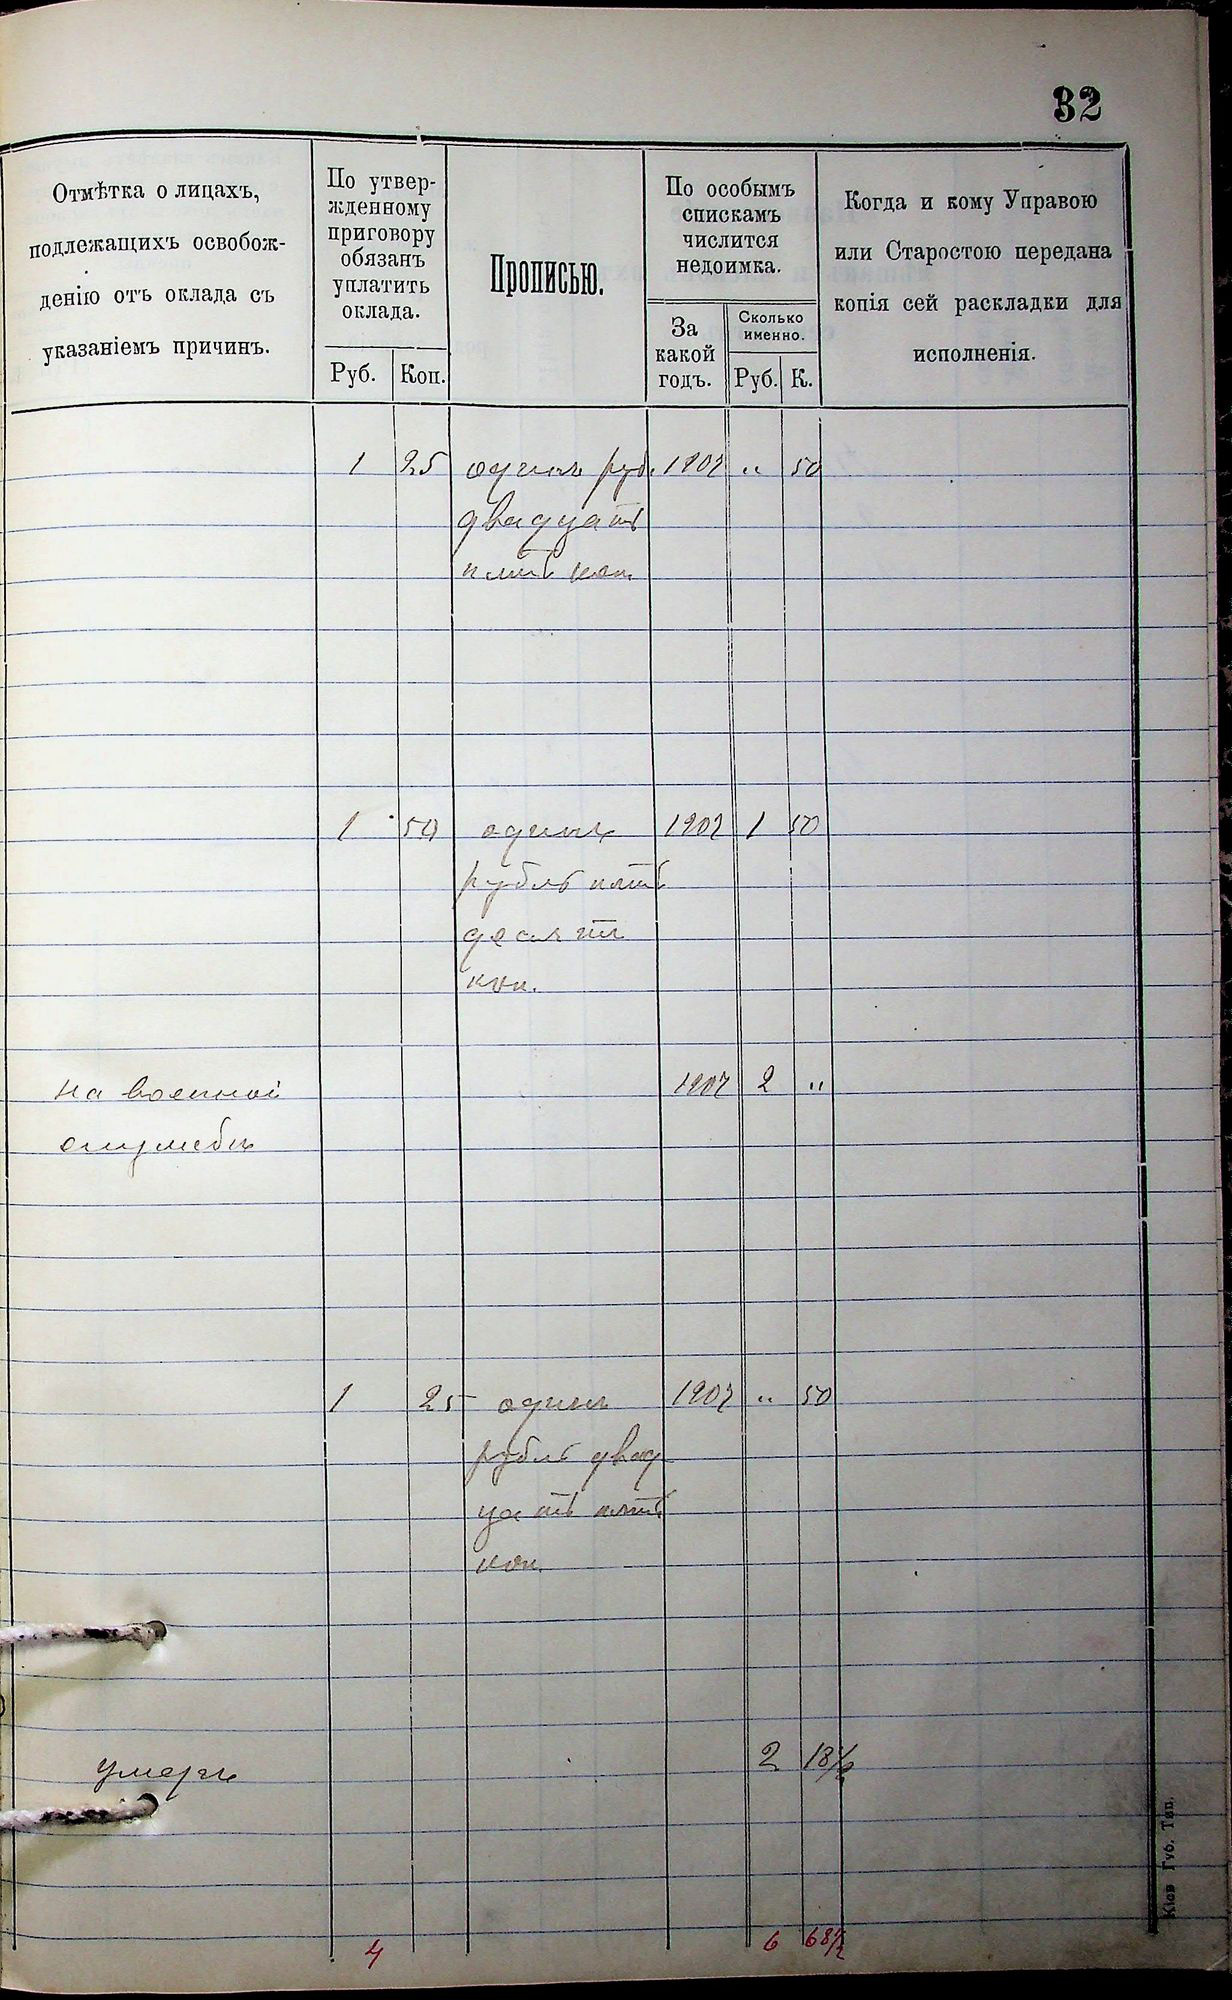 32
Отмѣтка о лицахъ,
подлежащихъ освобож-
денію отъ оклада съ
указаніемъ причинъ.
По утвер-
жденному
приговору
обязанъ
уплатить
оклада.
Руб. Коп.
Прописью.
По особымъ
спискамъ
числится
недоимка.
За
какой
годъ.
Сколько
именно.
Руб. К.
Когда и кому Управою
или Старостою передана
копія сей раскладки для
исполненія.
1 25 одинъ руб. 1907 " 50
двадцать
пять коп.
1 50 одинъ 1907 1 50
рубль пять
десятъ
коп.
на военной 1907 2 "
службѣ
1 25 одинъ 1907 " 50
рубль двад
цать пять
коп.
умеръ 2 18 1/2
4 6 68 1/2
Кіев Губ. Тип.